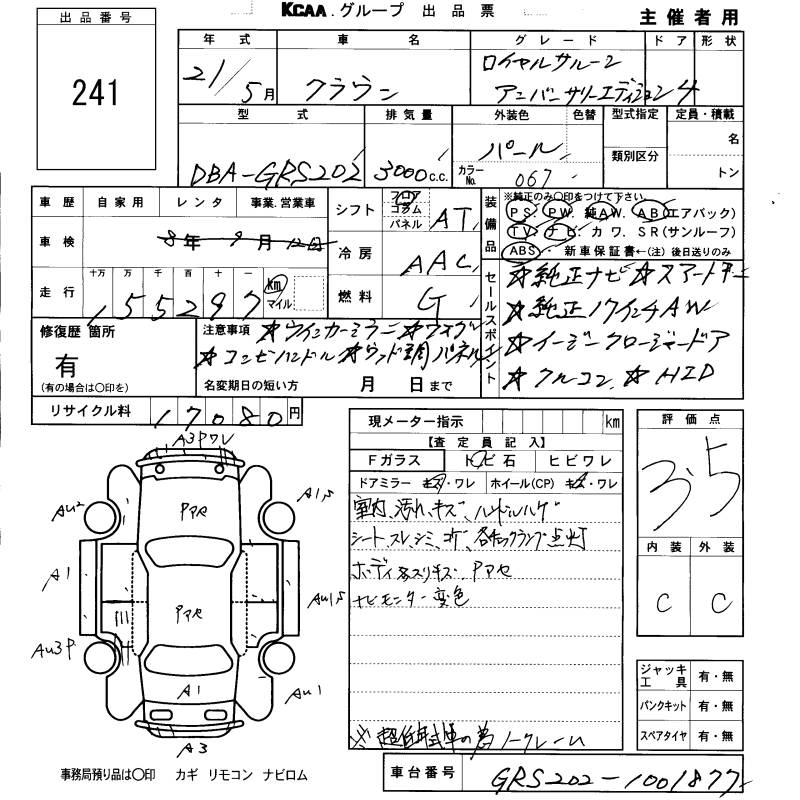 KCAA.グループ 出品票
主催者用
出品番号
241
年式 車名 グレード ドア 形状
21/5月 クラウン ロイヤルサルーン
アニバーサリーエディション 4
型式 排気量 外装色 色替 型式指定 定員・積載
DBA-GRS202 3000c.c. パール 類別区分 名
カラーNo. 067 トン
車歴 自家用 レンタ 事業.営業車
車検 8年9月12日
走行 十万 万 千 百 十 一
155297 km マイル
シフト フロア コラム パネル AT
冷房 AAC
燃料 G
装備品
※純正のみ○印をつけて下さい
PS. PW. 純AW. AB(エアバック)
TV. ナビ. カワ. SR(サンルーフ)
ABS. 新車保証書←(注) 後日送りのみ
セールスポイント
☆純正ナビ ☆スマートキー
☆純正17インチAW
☆イージークロージャードア
☆クルコン ☆HID
修復歴 箇所
有
(有の場合は○印を)
注意事項 ☆ウインカーミラー ☆ウォグレ
☆コンビハンドル ☆ウッド調パネル
名変期日の短い方 月 日まで
リサイクル料 17080円
現メーター指示 km
【査定員記入】
Fガラス トビ石 ヒビワレ
ドアミラー キズ・ワレ ホイール(CP) キズ・ワレ
室内、汚れ、キズ、ハンドルハゲ
シート、スレ、シミ、コゲ、各チェックランプ点灯
ボディ各スリキズ、Pアセ
ナビモニター変色
※超低年式車の為ノークレーム
評価点
3.5
内装 外装
C C
ジャッキ 工具 有・無
パンクキット 有・無
スペアタイヤ 有・無
A3Pワレ
Au2
A1S
Pアセ
A1
Au1S
Pアセ
Au3P
A1
Au1
A3
事務局預り品は○印 カギ リモコン ナビロム
車台番号 GRS202-1001877